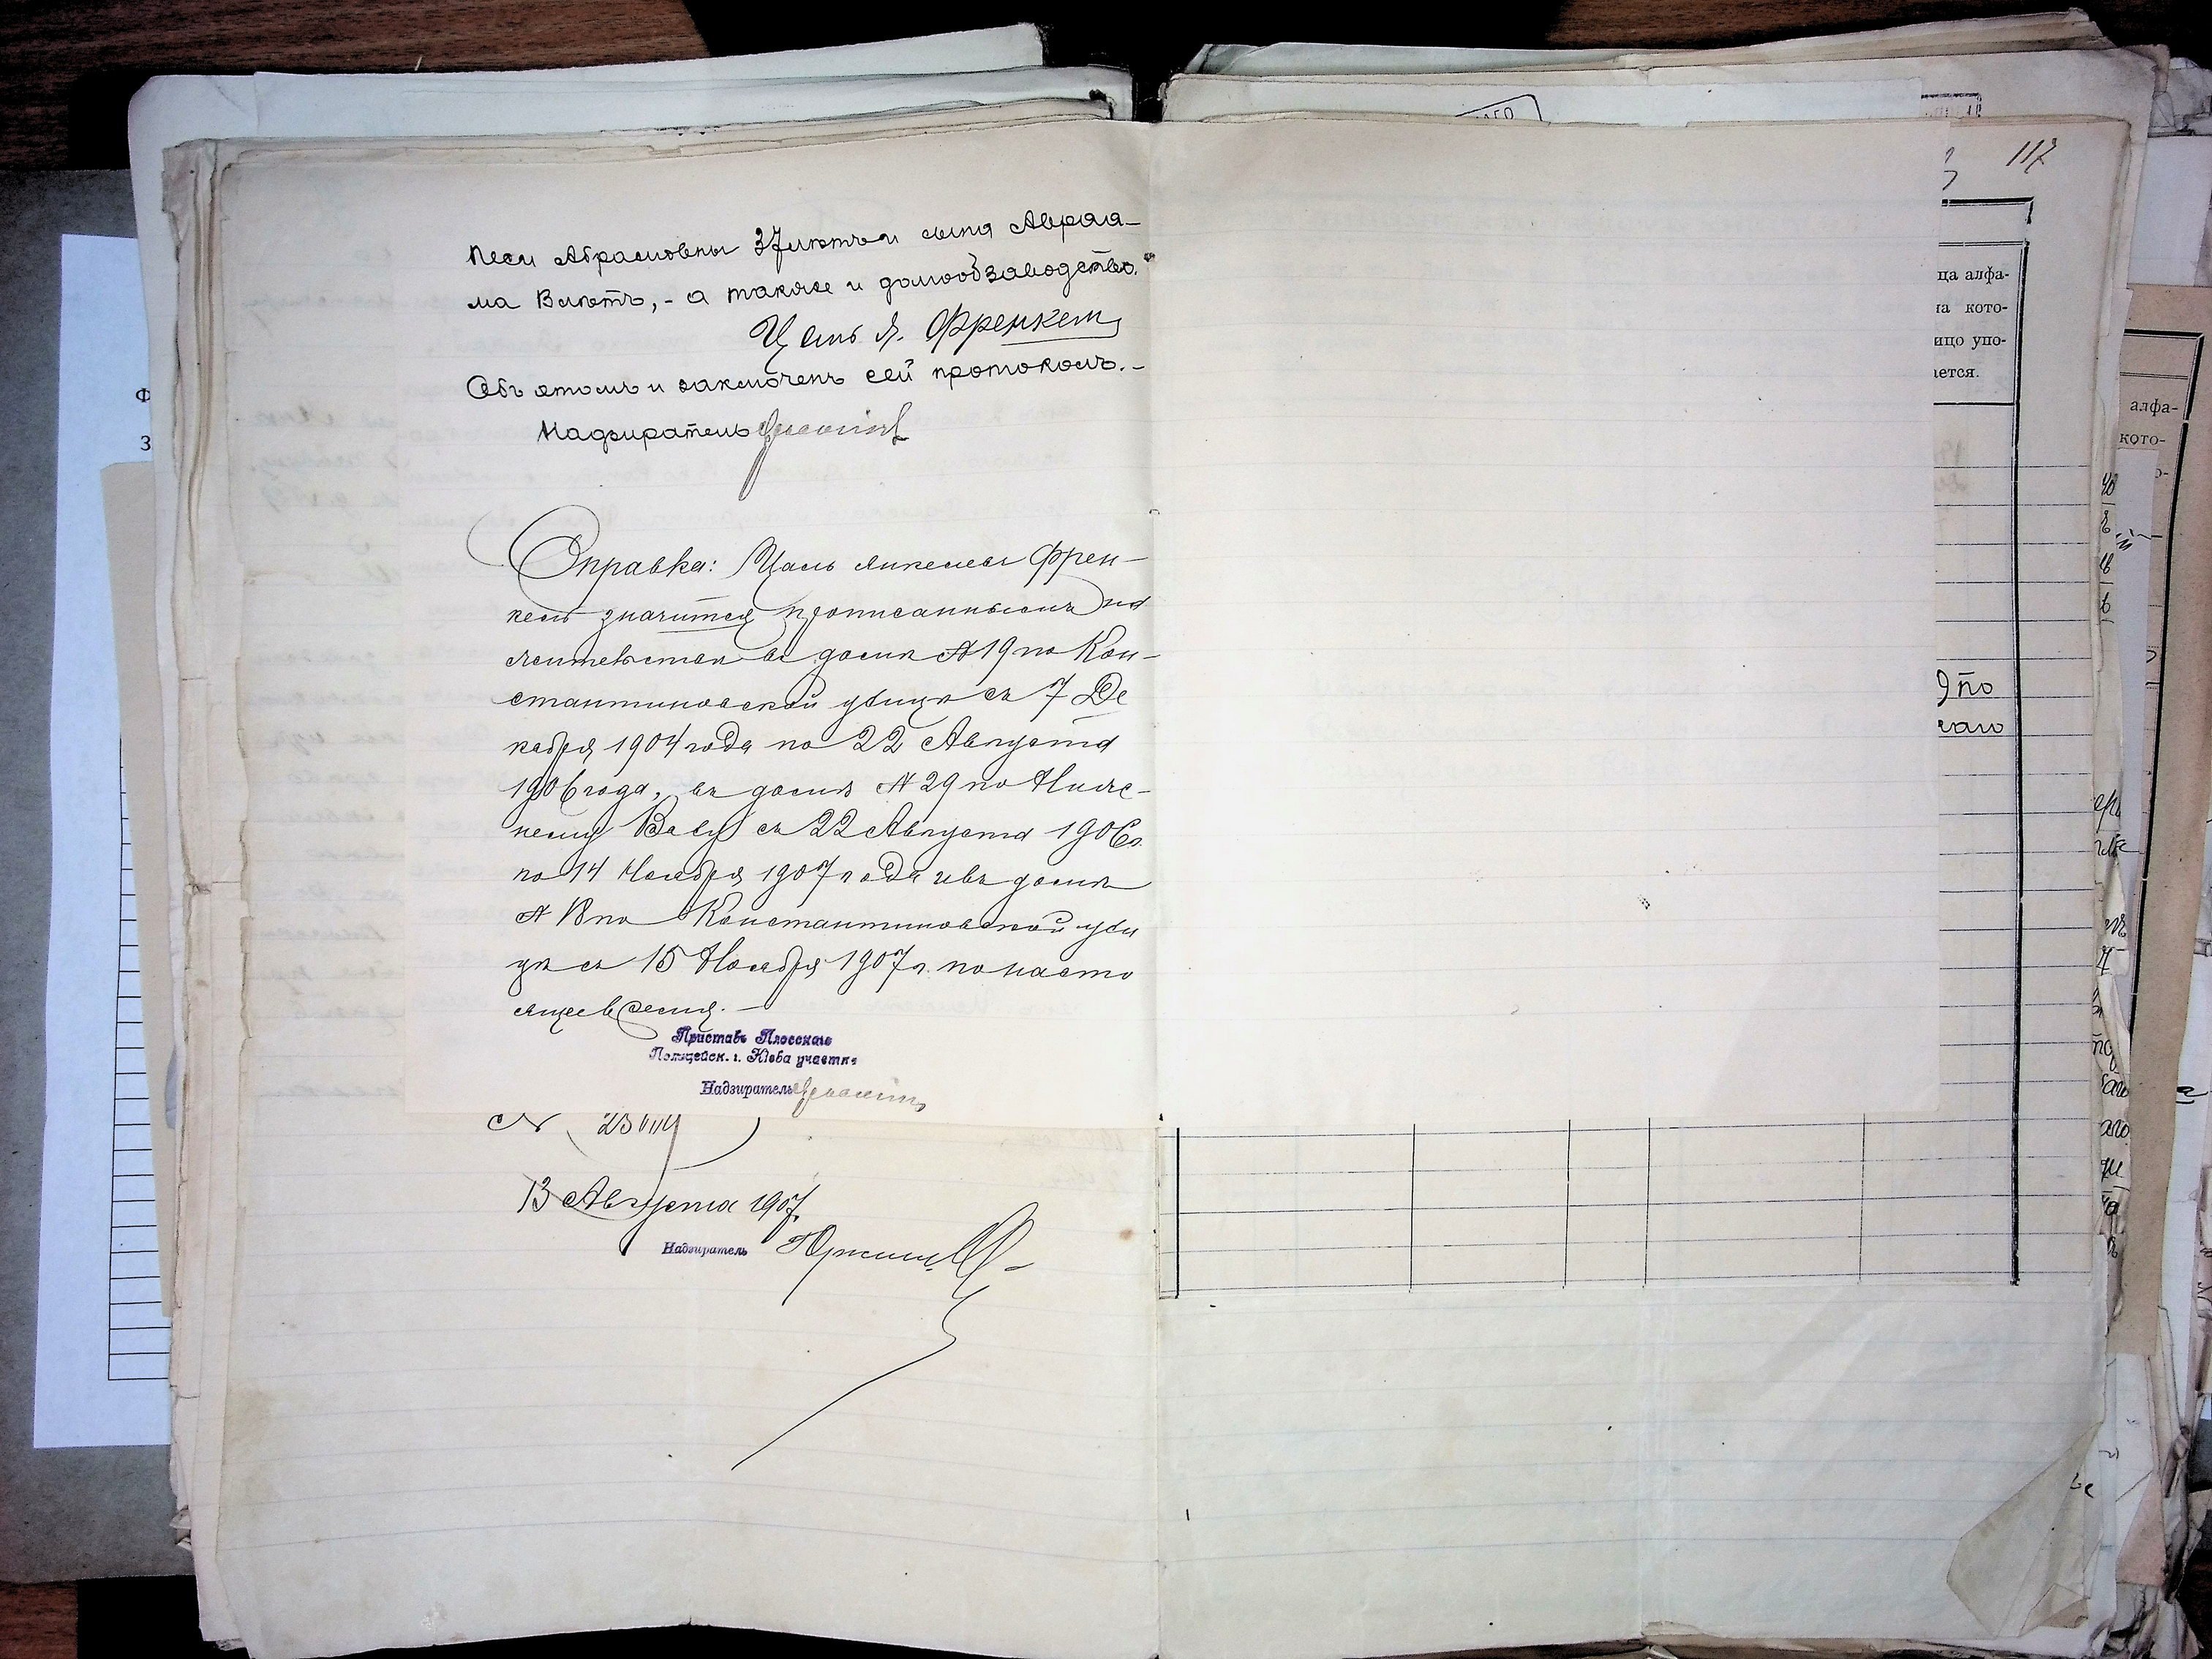 117
Песи Абрамовны 37 лѣтъ и сына Авраа-
ма 8 лѣтъ, - а также и домообзаводство.
Цаль Я. Френкель
Объ этомъ и заключенъ сей протоколъ. -
Надзиратель
Справка: Цаль Янкелевъ Френ-
кель значится прописаннымъ на
жительство въ домѣ № 19 по Кон-
стантиновской улицѣ съ 7 Де
кабря 1904 года по 22 Августа
1906 года, въ домѣ № 29 по Ниж-
нему Валу съ 22 Августа 1906 г.
по 14 Ноября 1907 года и въ домѣ
№ по Константиновской ули
цѣ съ 15 Ноября 1907 г. по насто
ящее время. -
Приставъ Плосскаго
Полицейск. г. Кіева участка
Надзиратель
№
13 Августа 1907
Надзиратель
ца алфа-
на кото-
лицо упо-
ается.
9 по
алфа-
кото-
Ф
З